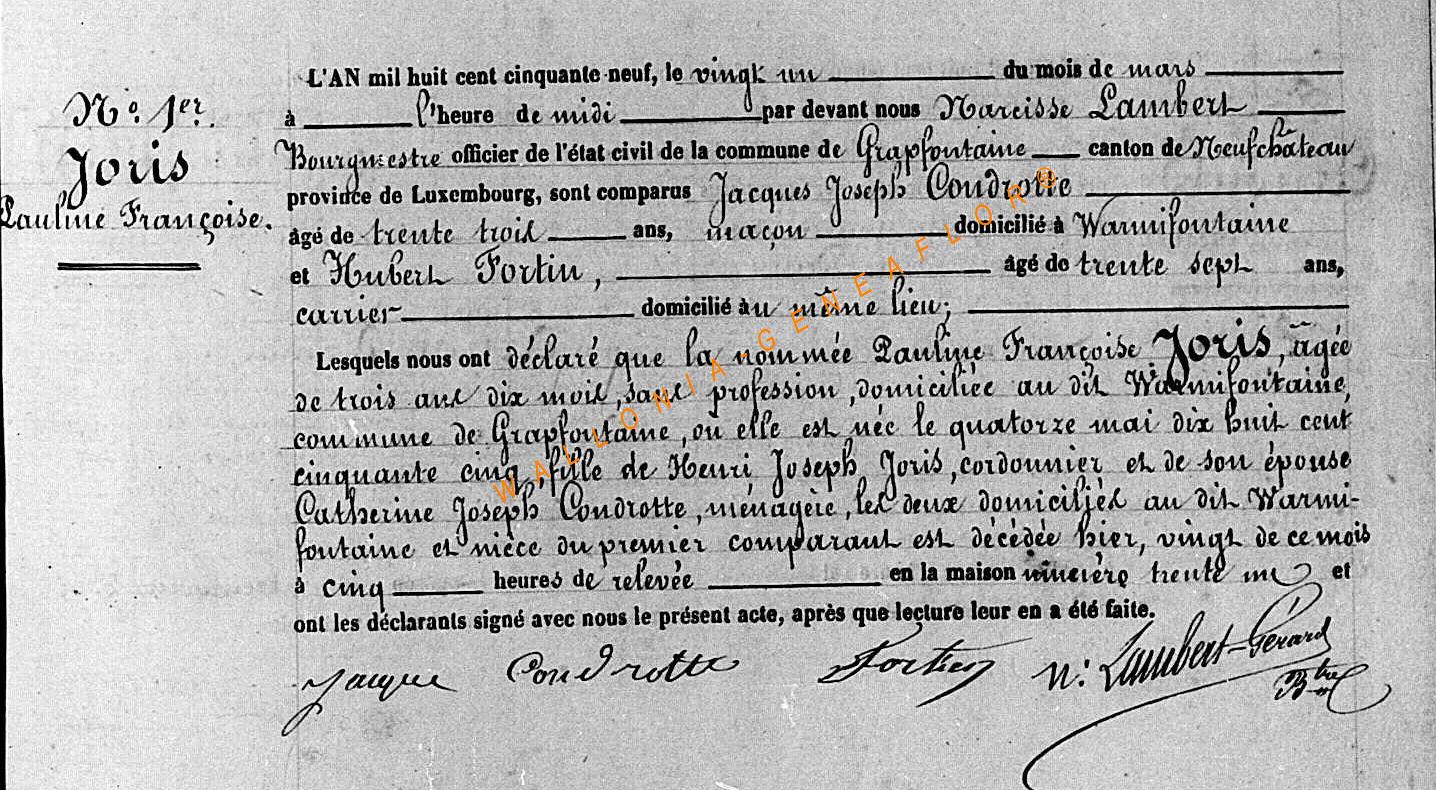 N.º 1er.
Joris
Pauline Françoise.
L'AN mil huit cent cinquante neuf, le vingt un du mois de mars
à l'heure de midi par devant nous Narcisse Lambert
Bourgmestre officier de l'état civil de la commune de Grapfontaine canton de Neufchâteau
province de Luxembourg, sont comparus Jacques Joseph Condrotte
âgé de trente trois ans, maçon domicilié à Warmifontaine
et Hubert Fortin, âgé de trente sept ans,
carrier domicilié au même lieu;
Lesquels nous ont déclaré que la nommée Pauline Françoise Joris, âgée
de trois ans dix mois, sans profession, domiciliée au dit Warmifontaine,
commune de Grapfontaine, où elle est née le quatorze mai dix huit cent
cinquante cinq, fille de Henri Joseph Joris, cordonnier et de son épouse
Catherine Joseph Condrotte, ménagère, les deux domiciliés au dit Warmi-
fontaine et nièce du premier comparant est décédée hier, vingt de ce mois
à cinq heures de relevée en la maison trente un et
ont les déclarants signé avec nous le présent acte, après que lecture leur en a été faite.
Jacque Condrotte Fortin N: Lambert-Gérard
Btre
WALLONIA-GENEAFLOR®